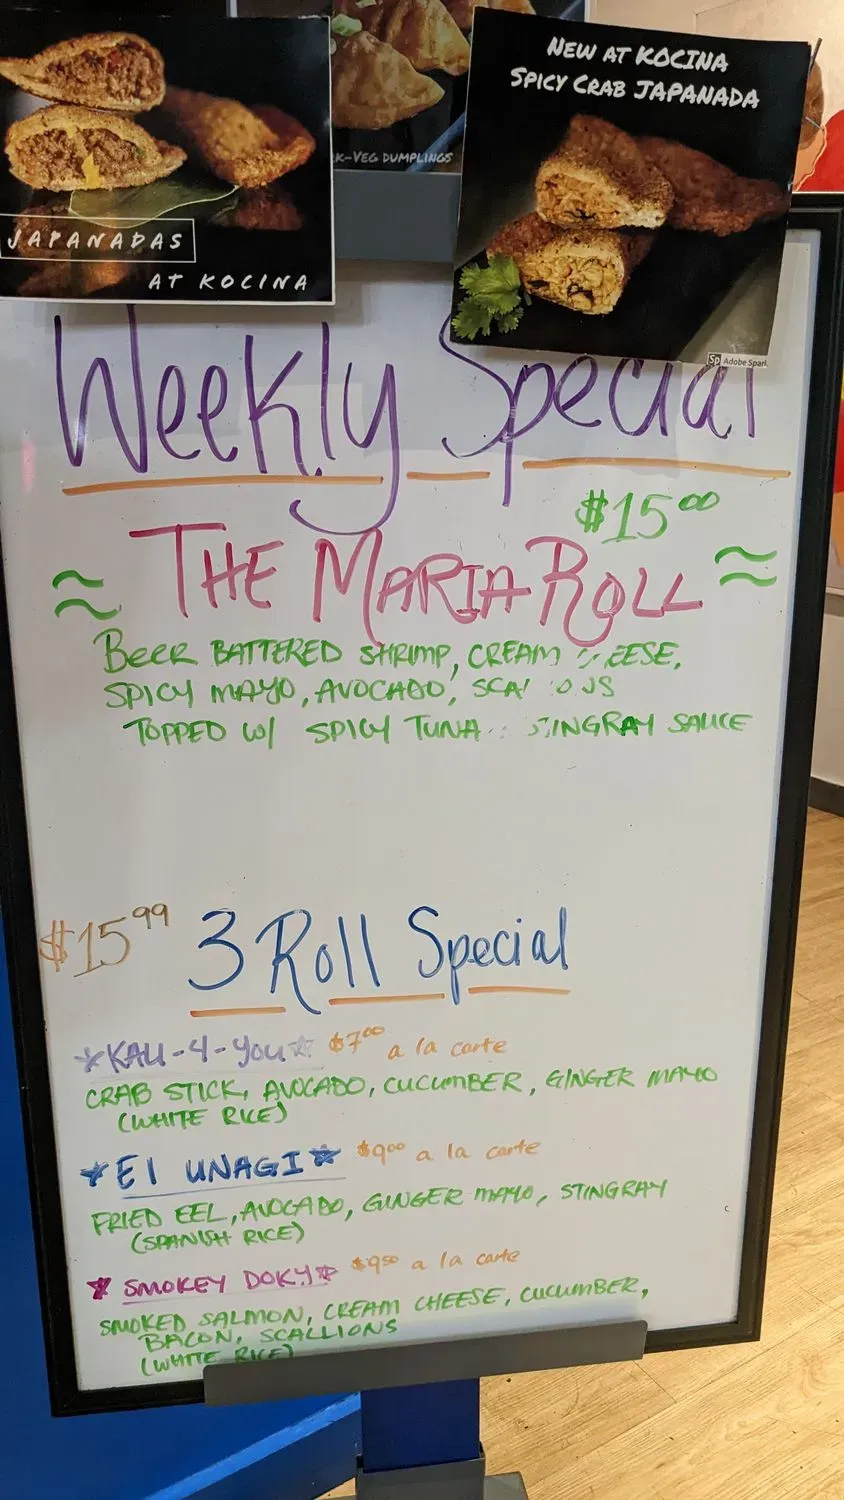 NEW AT KOCINA
SPICY CRAB JAPANADA
K-VEG DUMPLINGS
JAPANADAS
AT KOCINA
Sp Adobe Spark
Weekly Special
$15.00
≈ THE MARIA ROLL ≈
BEER BATTERED SHRIMP, CREAM EESE,
SPICY MAYO, AVOCADO,
TOPPED W/ SPICY TUNA INGRAY SAUCE
$15.99 3 Roll Special
*KALI-4-YOU* $7.00 a la carte
CRAB STICK, AVOCADO, CUCUMBER, GINGER MAYO
(WHITE RICE)
*EL UNAGI* $9.00 a la carte
FRIED EEL, AVOCADO, GINGER MAYO, STINGRAY
(SPANISH RICE)
*SMOKEY DOKY* $9.50 a la carte
SMOKED SALMON, CREAM CHEESE, CUCUMBER,
BACON, SCALLIONS
(WHITE RICE)